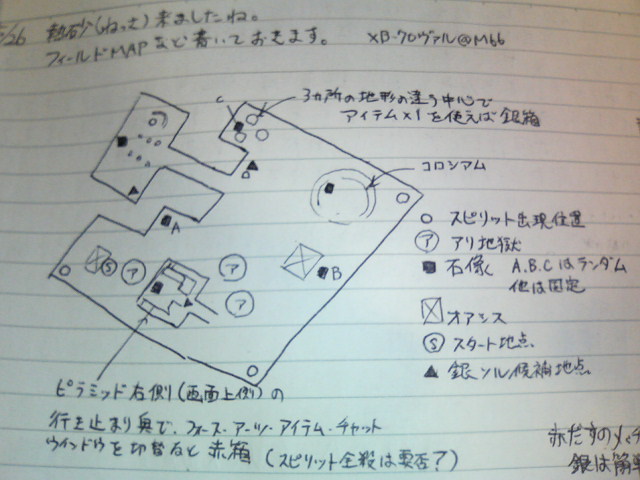 /26 熱砂(ねっさ)来ましたね。
フィールドMAPなど書いておきます。 xB-クロヴァル@M66
3カ所の地形の違う中心で
アイテム×1を使えば銀箱
C
コロシアム
A
B
ア
ア
ア
S
○ スピリット出現位置
ア アリ地獄
■ 石像 A.B.Cはランダム
他は固定
オアシス
S スタート地点
▲ 銀ソル候補地点
ピラミッド右側(画面上側)の
行き止まり奥で、フォース・アーツ・アイテム・チャット
ウインドウを切替ると赤箱 (スピリット全殺は要否?)
赤だすの
銀は簡単